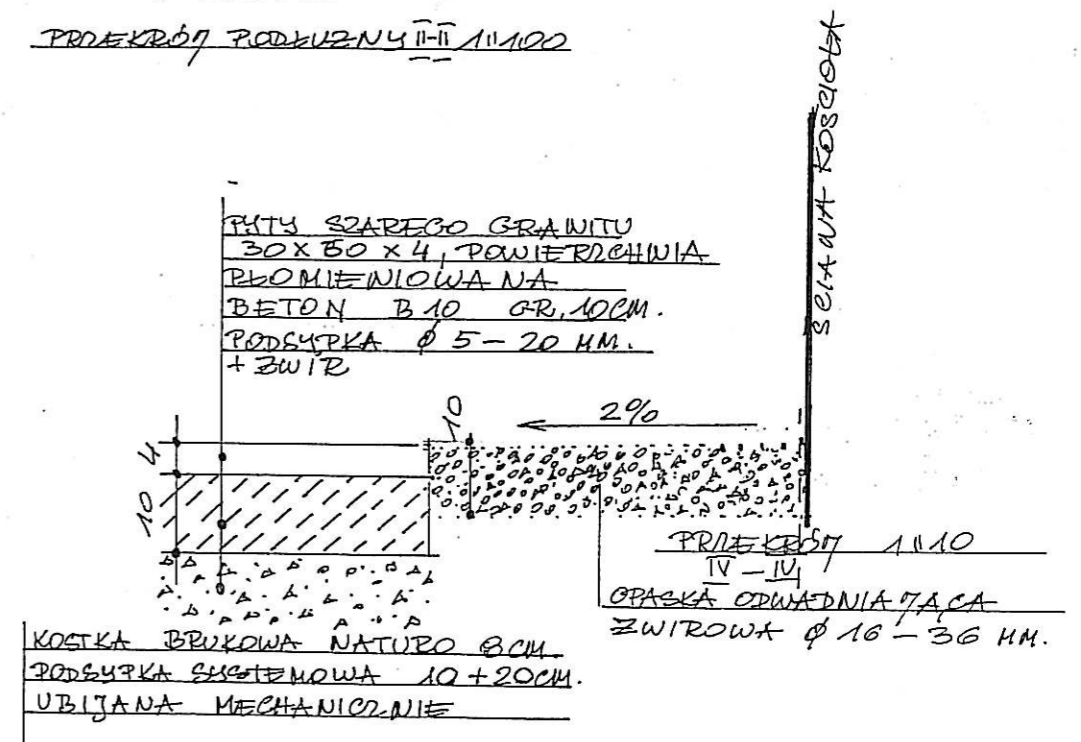 PRZEKRÓJ PODŁUŻNY II-II 1:100
ŚCIANA KOŚCIOŁA
PŁYTY SZAREGO GRANITU
30 X 60 X 4, POWIERZCHNIA
PŁOMIENIOWANA
BETON B 10 GR. 10CM.
PODSYPKA Ø 5 – 20 MM.
+ ŻWIR
10
2%
4
10
PRZEKRÓJ 1:10
IV – IV
OPASKA ODWADNIAJĄCA
ŻWIROWA Ø 16 – 36 MM.
KOSTKA BRUKOWA NATURO 8CM.
PODSYPKA SYSTEMOWA 10 + 20CM.
UBIJANA MECHANICZNIE